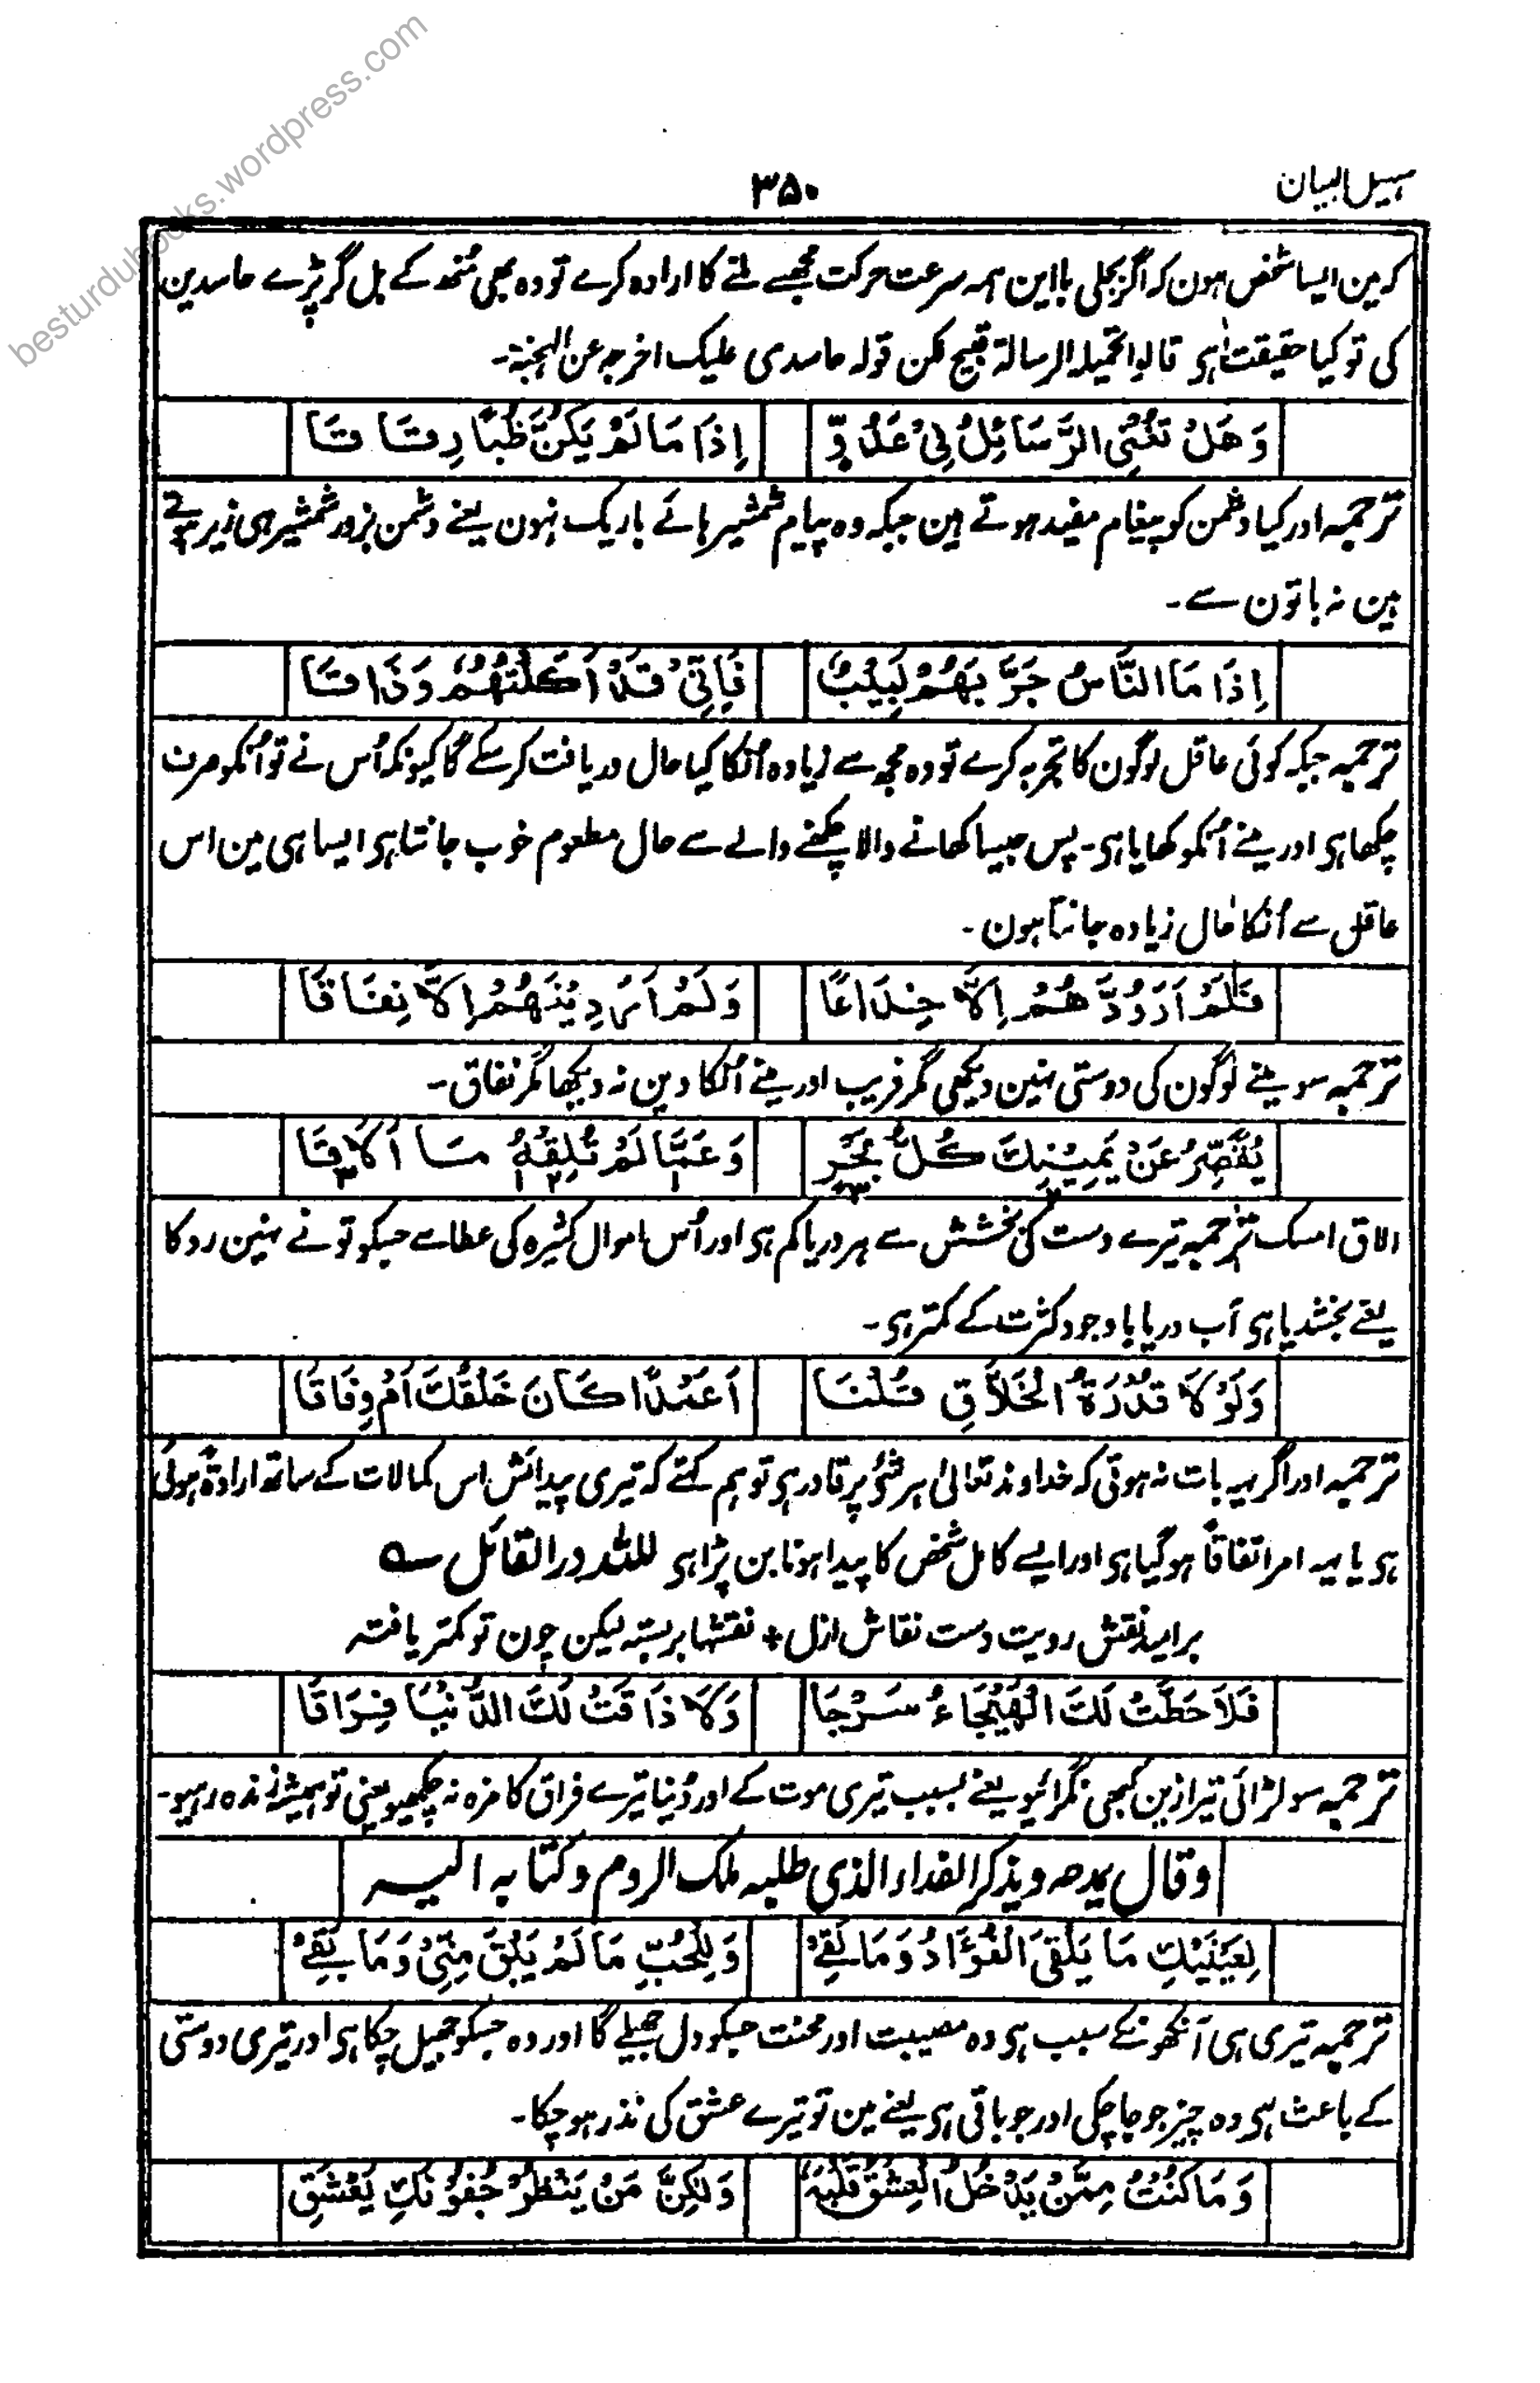 besturdubooks.wordpress.com
۳۵۰
سہیل البیان
کہ مین ایسا شخص ہون کہ اگر بجلی بااین ہمہ سرعت حرکت مجھسے ملنے کا ارادہ کرے تو وہ بھی مُنھ کے بل گر پڑے حاسدین
کی تو کیا حقیقت ہی قالوا تحمیلہ الرسالۃ قبیح لکن قولہ حاسدی علیک اخرجہ عن الہجنۃ۔
وَهَلْ تُغْنِي الرَّسَائِلُ فِيْ عَدُوٍّ اِذَا مَا لَمْ يَكُنَّ ظُبًا رِقَاقَا
ترجمہ اور کیا دشمن کو پیغام مفید ہوتے ہین جبکہ وہ پیام شمشیرہائے باریک نہون یعنے دشمن بزور شمشیر ہی زیر ہوتے
ہین نہ باتون سے۔
اِذَا مَا النَّاسُ جَرَّبَهُمْ لَبِيْبٌ فَاِنِّيْ قَدْ اَكَلْتُهُمْ وَذَاقَا
ترجمہ جبکہ کوئی عاقل لوگون کا تجربہ کرے تو وہ مجھ سے زیادہ اُنکا کیا حال دریافت کرسکے گا کیونکہ اُس نے تو اُنکو صرف
چکھا ہی اور مینے اُنکو کھایا ہی۔ پس جیسا کھانے والا چکھنے والے سے حال مطعوم خوب جانتا ہی ایسا ہی مین اس
عاقل سے اُنکا حال زیادہ جانتا ہون۔
فَلَمْ اَرَ وُدَّهُمْ اِلَّا خِدَاعًا وَلَمْ اَرَ دِيْنَهُمْ اِلَّا نِفَاقَا
ترجمہ سو مینے لوگون کی دوستی نہین دیکھی مگر فریب اور مینے اُنکا دین نہ دیکھا مگر نفاق۔
يُقَصِّرُ عَنْ يَمِيْنِكَ كُلُّ بَحْرٍ وَعَمَّا لَمْ تُلِقْهُ مَا اَلَاقَا
الاق امسک ترجمہ تیرے دست کی بخشش سے ہر دریا کم ہی اور اُس اموال کثیرہ کی عطا سے جسکو تو نے نہین روکا
یعنے بخشدیا ہی آب دریا باوجود کثرت کے کمتر ہی۔
وَلَوْلَا قُدْرَةُ الْخَلَّاقِ قُلْنَا اَعَمْدًا كَانَ خَلْقُكَ اَمْ وِفَاقَا
ترجمہ اور اگر یہ بات نہ ہوتی کہ خداوند تعالیٰ ہر شئ پر قادر ہی تو ہم کہتے کہ تیری پیدائش اس کمالات کے ساتھ ارادۃً ہوئی
ہی یا یہ امر اتفاقاً ہوگیا ہی اور ایسے کامل شخص کا پیدا ہونا بن پڑا ہی للہ در القائل ؎
بر امید نقش رویت دست نقاش ازل + نقشہا بر بستہ لیکن چون تو کمتر یافتہ
فَلَا حَطَّتْ لَكَ الْهَيْجَاءُ سَرْجَا وَلَا ذَاقَتْ لَكَ الدُّنْيَا فِرَاقَا
ترجمہ سو لڑائی تیرا زین کبھی نگرائیو یعنے بسبب تیری موت کے اور دُنیا تیرے فراق کا مزہ نہ چکھیو یعنی تو ہمیشہ زندہ رہیو۔
وقال یمدحہ ویذکر الفداء الذی طلبہ ملک الروم وکتابہ الیہ
لِعَيْنَيْكِ مَا يَلْقَى الْفُؤَادُ وَمَا لَقِيْ وَلِلْحُبِّ مَا لَمْ يَبْقَ مِنِّيْ وَمَا بَقِيْ
ترجمہ تیری ہی آنکھونکے سبب ہی وہ مصیبت اور محنت جسکو دل جھیلے گا اور وہ جسکو جھیل چکا ہی اور تیری دوستی
کے باعث ہی وہ چیز جو جاچکی اور جو باقی ہی یعنے مین تو تیرے عشق کی نذر ہوچکا۔
وَمَا كُنْتُ مِمَّنْ يَدْخُلُ الْعِشْقُ قَلْبَهٗ وَلٰكِنَّ مَنْ يَنْظُرْ جُفُوْنَكِ يَعْشَقِ